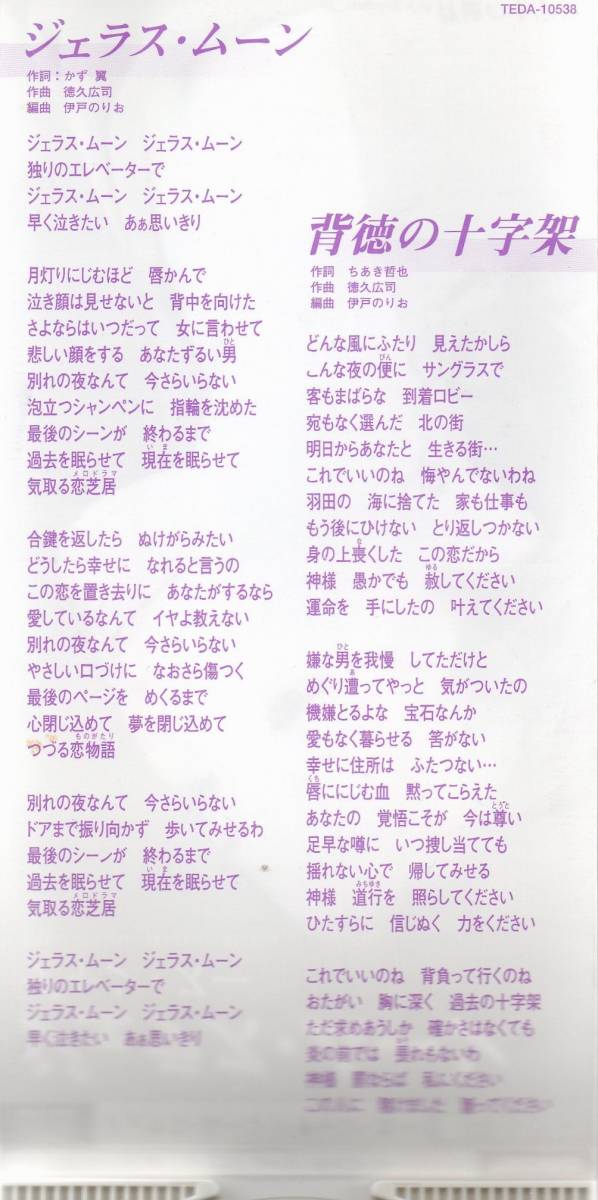 TEDA-10538
ジェラス・ムーン
作詞：かず 翼
作曲 徳久広司
編曲 伊戸のりお
ジェラス・ムーン ジェラス・ムーン
独りのエレベーターで
ジェラス・ムーン ジェラス・ムーン
早く泣きたい あぁ思いきり
月灯りにじむほど 唇かんで
泣き顔は見せないと 背中を向けた
さよならはいつだって 女に言わせて
悲しい顔をする あなたずるい男
別れの夜なんて 今さらいらない
泡立つシャンペンに 指輪を沈めた
最後のシーンが 終わるまで
過去を眠らせて 現在を眠らせて
気取る恋芝居
合鍵を返したら ぬけがらみたい
どうしたら幸せに なれると言うの
この恋を置き去りに あなたがするなら
愛しているなんて イヤよ教えない
別れの夜なんて 今さらいらない
やさしい口づけに なおさら傷つく
最後のページを めくるまで
心閉じ込めて 夢を閉じ込めて
つづる恋物語
別れの夜なんて 今さらいらない
ドアまで振り向かず 歩いてみせるわ
最後のシーンが 終わるまで
過去を眠らせて 現在を眠らせて
気取る恋芝居
ジェラス・ムーン ジェラス・ムーン
独りのエレベーターで
ジェラス・ムーン ジェラス・ムーン
早く泣きたい あぁ思いきり
背徳の十字架
作詞 ちあき哲也
作曲 徳久広司
編曲 伊戸のりお
どんな風にふたり 見えたかしら
こんな夜の便に サングラスで
客もまばらな 到着ロビー
宛もなく選んだ 北の街
明日からあなたと 生きる街…
これでいいのね 悔やんでないわね
羽田の 海に捨てた 家も仕事も
もう後にひけない とり返しつかない
身の上喪くした この恋だから
神様 愚かでも 赦してください
運命を 手にしたの 叶えてください
嫌な男を我慢 してただけと
めぐり遭ってやっと 気がついたの
機嫌とるよな 宝石なんか
愛もなく暮らせる 筈がない
幸せに住所は ふたつない…
唇ににじむ血 黙ってこらえた
あなたの 覚悟こそが 今は尊い
足早な噂に いつ捜し当てても
揺れない心で 帰してみせる
神様 道行を 照らしてください
ひたすらに 信じぬく 力をください
これでいいのね 背負って行くのね
おたがい 胸に深く 過去の十字架
ただ求めあうしか 確かさはなくても
炎の前では 畏れもないわ
神様